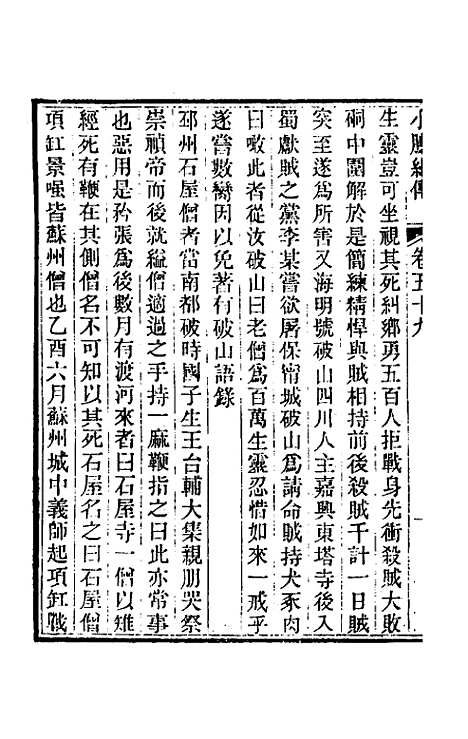 小腆紀傳 卷五十九
生靈豈可坐視其死糾鄉勇五百人拒戰身先衝殺賊大敗
硐中圍解於是簡練精悍與賊相持前後殺賊千計一日賊
突至遂爲所害又海明號破山四川人主嘉興東塔寺後入
蜀獻賊之黨李某嘗欲屠保甯城破山爲請命賊持犬豕肉
曰噉此者從汝破山曰老僧爲百萬生靈忍惜如來一戒乎
遂嘗數臠因以免著有破山語錄
邳州石屋僧者當南都破時國子生王台輔大集親朋哭祭
崇禎帝而後就縊僧適過之手持一麻鞭指之曰此亦常事
也惡用是矜張爲後數月有渡河來者曰石屋寺一僧以雉
經死有鞭在其側僧名不可知以其死石屋名之曰石屋僧
項缸景嚜皆蘇州僧也乙酉六月蘇州城中義師起項缸戰